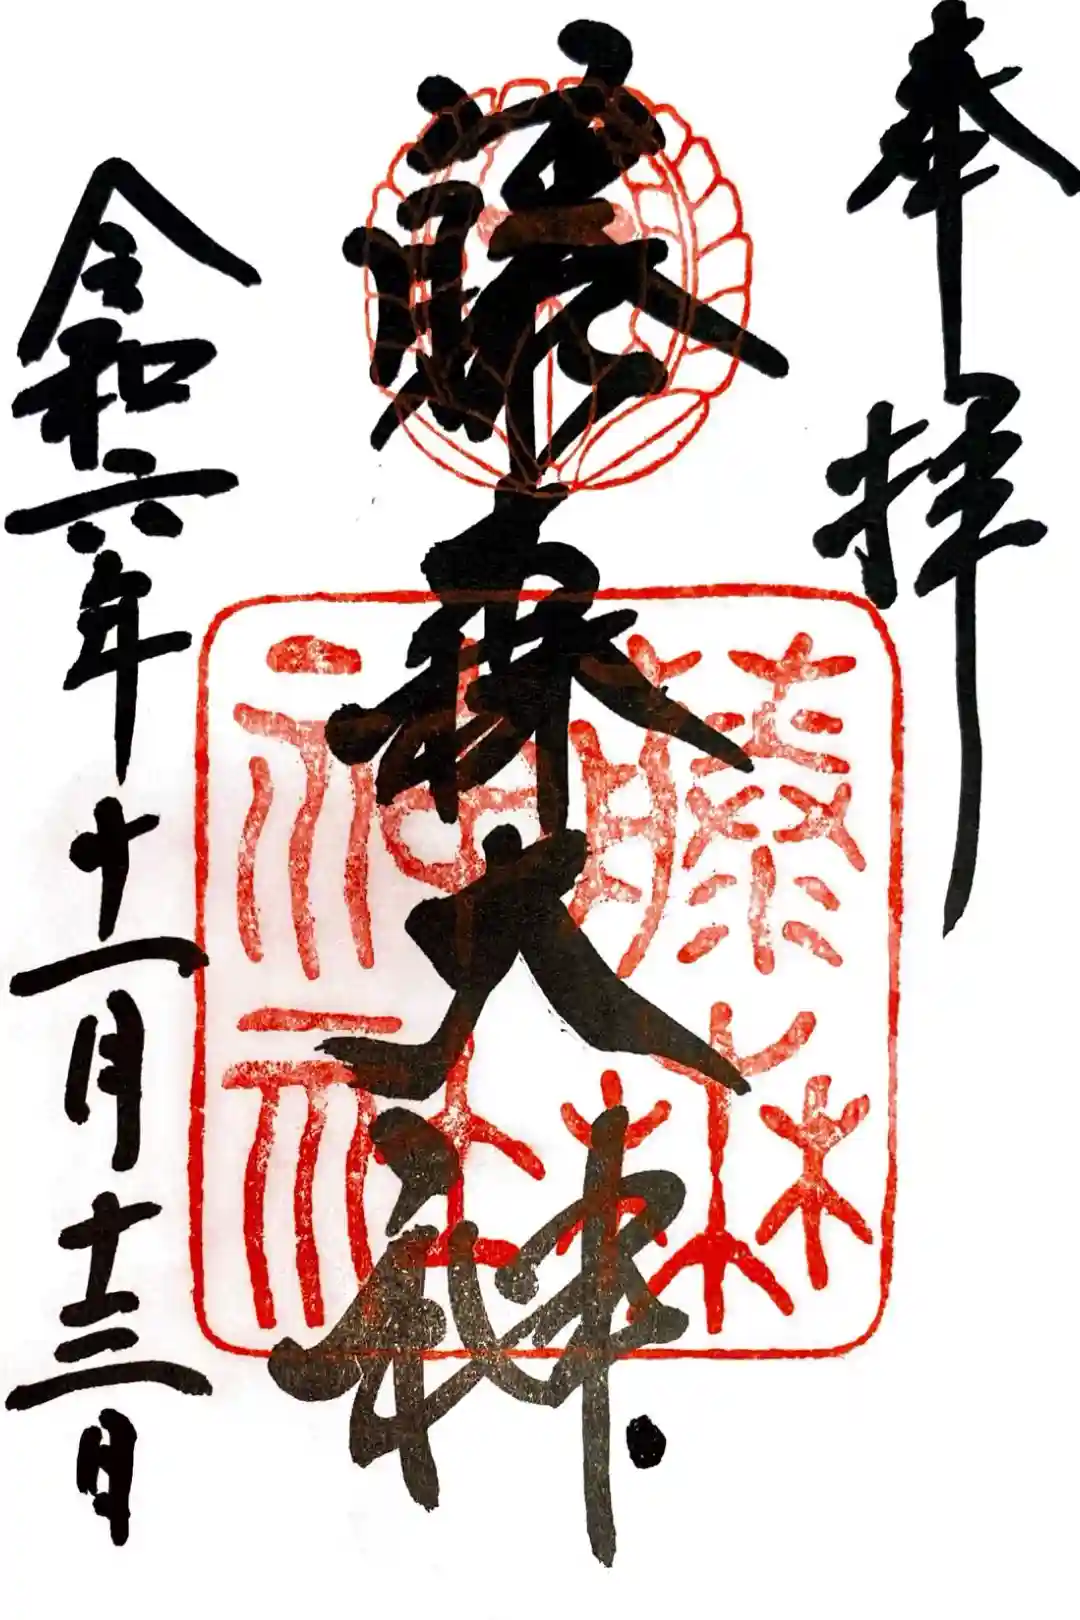 奉拝
藤森大神
藤森神社
令和六年十一月十三日